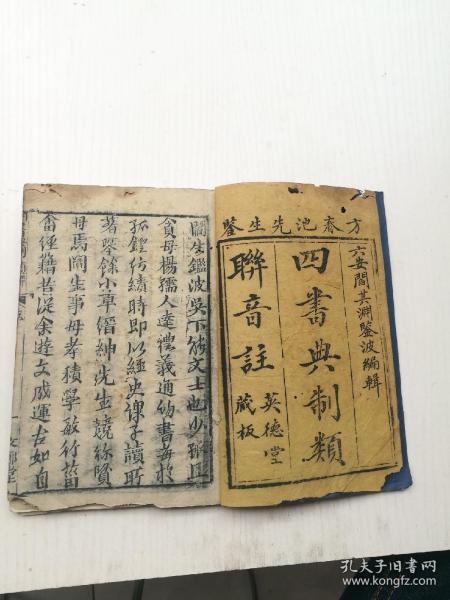 方春池先生鑒
六安閻其淵鑒波編輯
四書典制類
聯音註
英德堂
藏板
閻生鑑波吳下能文士也少孤
貧母楊孺人達禮義通詩書每於
孤鐙紡績時即以經史課子讀所
著翠餘小草縉紳先生競(賢
母焉閻生事母孝積學敏行菑
畬經籍昔從余遊士咸運古如自
孔夫子旧书网
www.kongfz.com